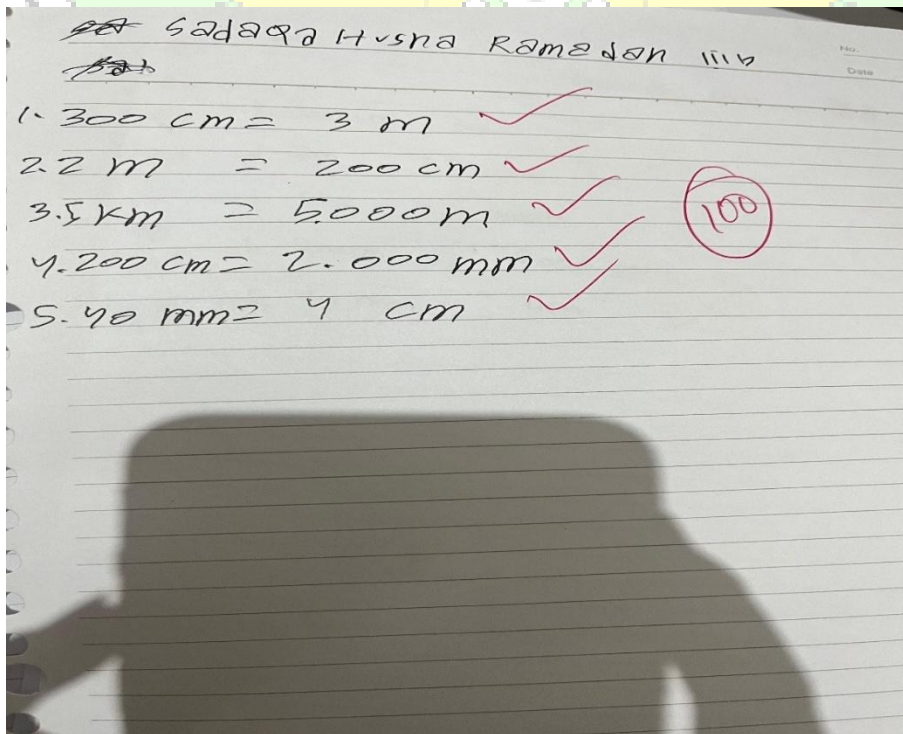 Sadaqa Husna Ramadan IIIb
No.
Date
1. 300 cm = 3 m
2. 2 m = 200 cm
3. 5 km = 5.000 m
4. 200 cm = 2.000 mm
5. 40 mm = 4 cm
100